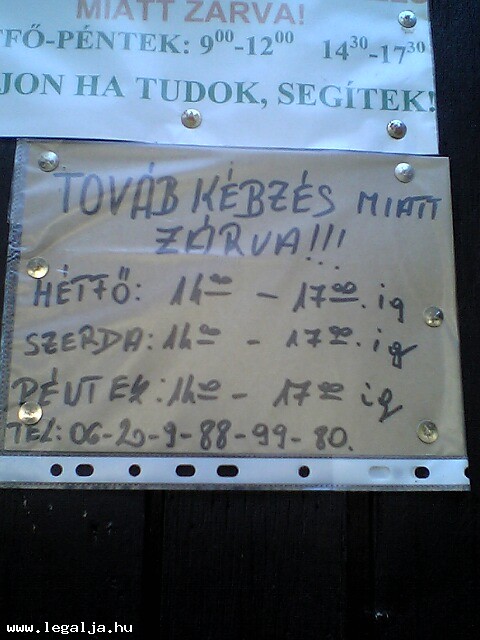 MIATT ZÁRVA!
TFŐ-PÉNTEK: 9⁰⁰-12⁰⁰ 14³⁰-17³⁰
JON HA TUDOK, SEGÍTEK!
TOVÁB KÉBZÉS MIATT
ZÁRVA!!!
HÉTFŐ: 14⁰⁰ - 17⁰⁰. ig
SZERDA: 14⁰⁰ - 17⁰⁰. ig
PÉNTEK: 14⁰⁰ - 17⁰⁰ ig
TEL: 06-20-9-88-99-80.
www.legalja.hu